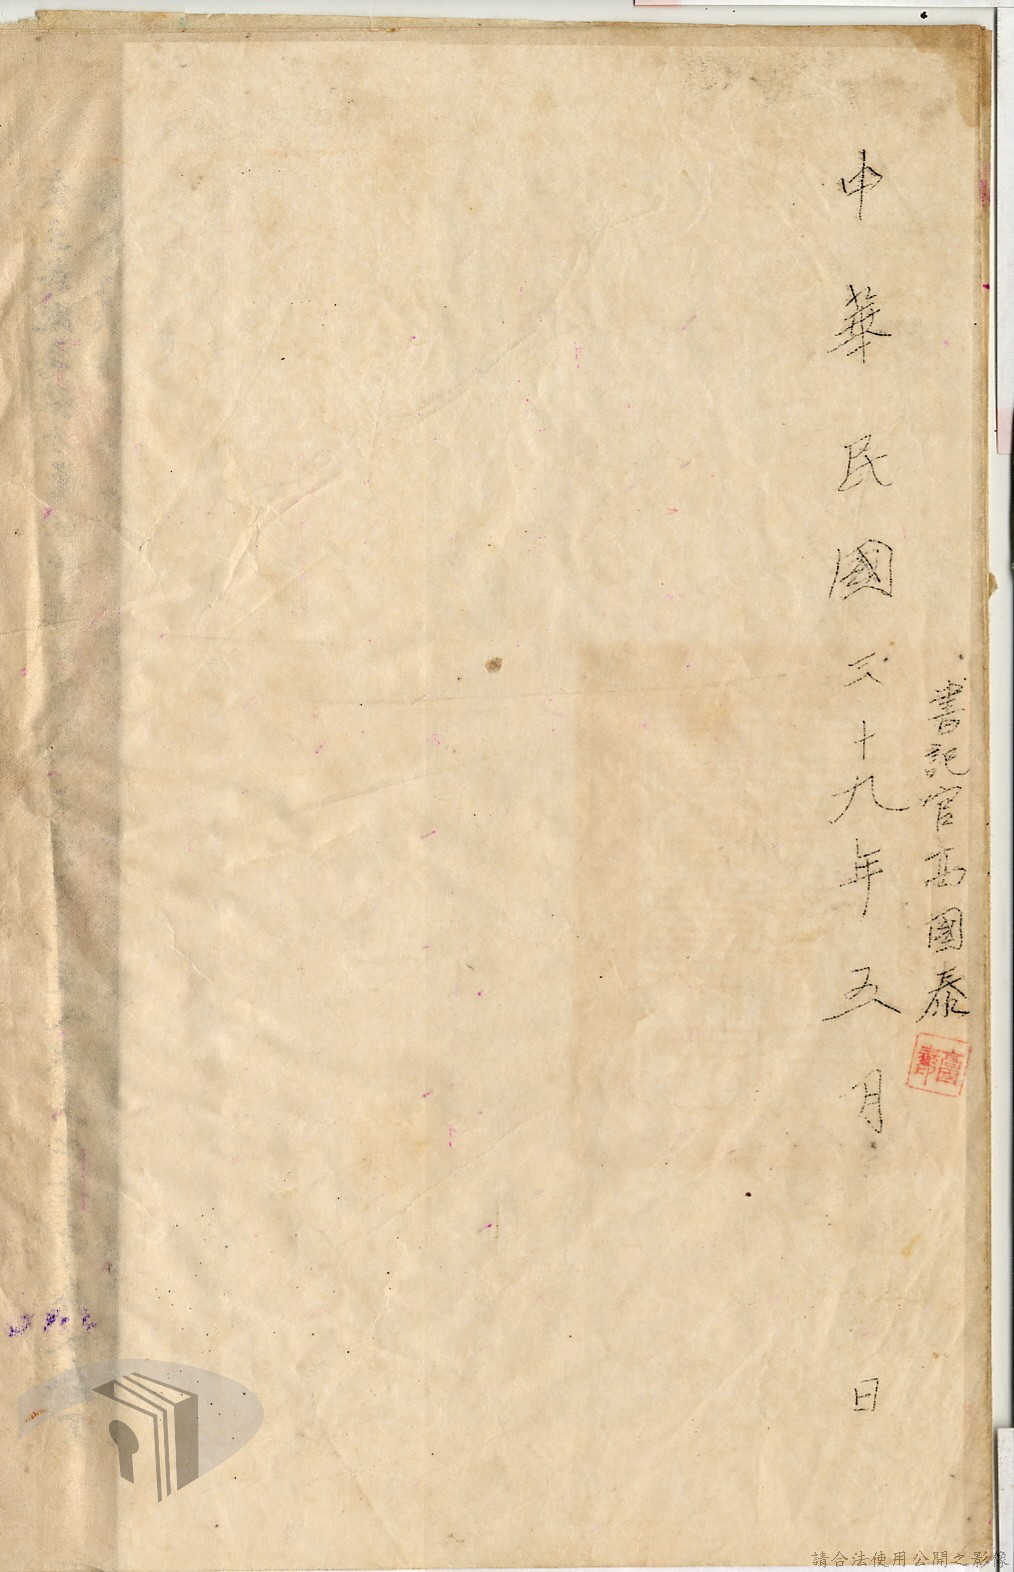 書記官高國泰
中華民國三十九年五月 日
請合法使用公開之影像